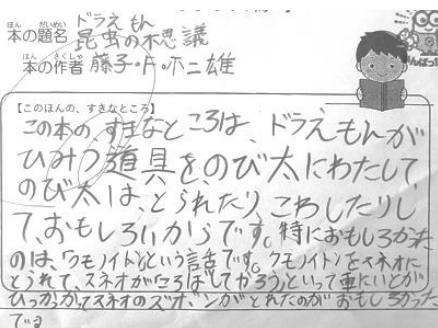 ほん だいめい
本の題名 ドラえもん
昆虫の不思議
ほん さくしゃ
本の作者 藤子・F・不二雄
がんばった
【このほんの、すきなところ】
この本の、すきなところは、ドラえもんが
ひみつ道具を、のび太にわたして
のび太は、とられたり、こわしたりし
て、おもしろいからです。特におもしろかった
のは、「クモノイトン」という話です。クモノイトンをスネオに
とられて、スネオが「ころばしてやろう」といって車にいとが
ひっかかってスネオのズボンがとれたのがおもしろかった
です